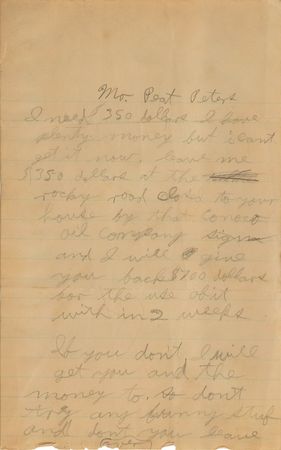 Mo. Peat Peters
I need 350 dollars I have
plenty money but i cant
get it now, leave me
$350 dollars at the
rocky road clois to your
house by that Conoco
oil Company sign
and I will give
you back $700 dollars
for the use ob it
with in 2 weeks
If you don't, I will
get you and the
money to. so don't
try any funny stuf
and don't you leave
(over)